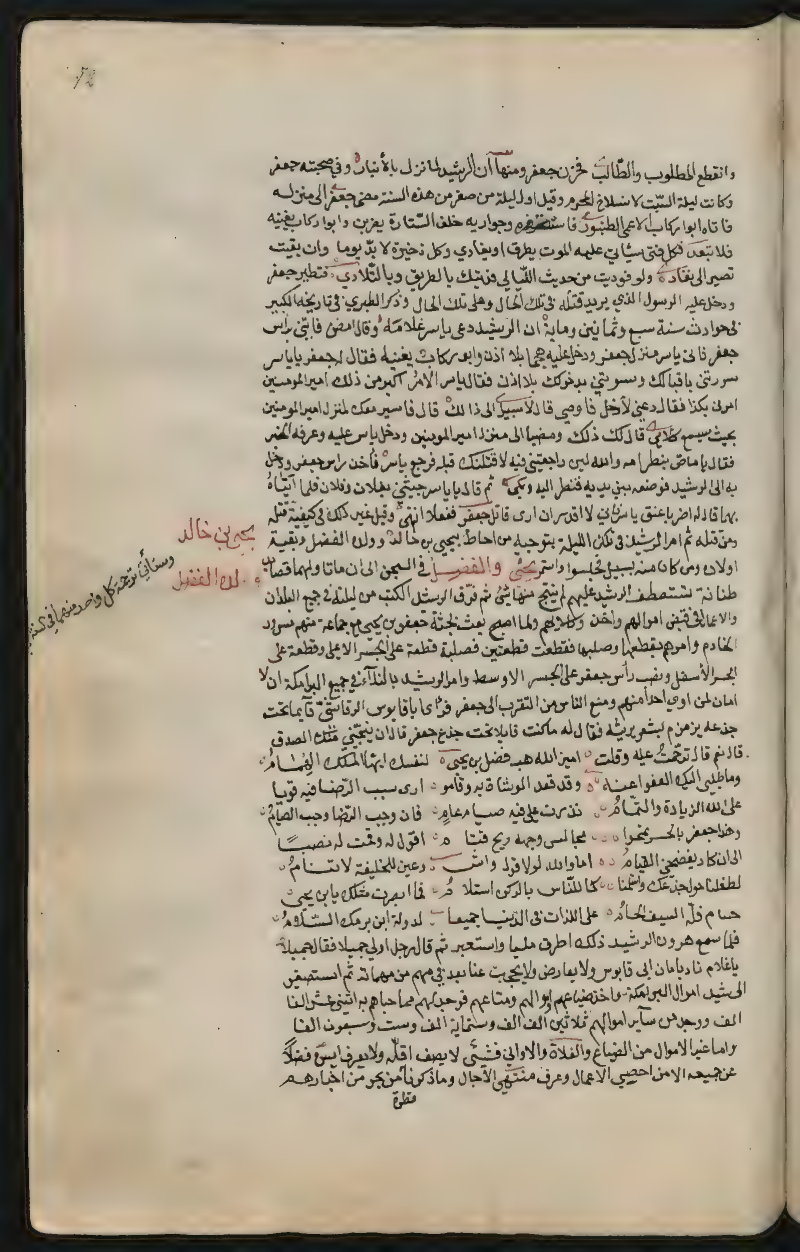 وانقطع المطلوب والطالب فحزن جعفر ومنها ان الرشيد لما نزل بالأنبار وفي صحبته جعفر
وكانت ليلة السبت لانسلاخ المحرم وقيل اول ليلة من صفر من هذه السنة مضى جعفر الى منزله
فاتاه ابوا ركاب الاعمى الطنبوري وجواريه خلف الستارة يغنين وابوا ركاب يغنيه
فلا تبعد فكل فتى سيأتي عليه الموت يطرق او يغادي وكل ذخيرة لا بد يوما وان بقيت
تصير الى نفاد ولو فوديت من حدث الليالي فديتك بالطريف وبالتلادي فتطير جعفر
ودخل عليه الرسول الذي يريد قتله في تلك الحال وهلى تلك الحال وذكر الطبري في تاريخه الكبير
في حوادث سنة سبع وثمانين وماية ان الرشيد دعى ياسر غلامه وقال امض فاتني براس
جعفر فاتى ياسر منزل جعفر ودخل عليه هجما بلا اذن وابو ركاب يغنيه فقال له جعفر ياياسر
سررتني باقبالك وسوتني بدخولك بلا اذن فقال ياسر الامر اكبر من ذلك امير المومنين
امرني بكذا فقال دعني لأدخل فاوصي قال لا سبيل الى ذلك قال فاسير معك لمنزل امير المومنين
بحيث يسمع كلامي قال لك ذلك ومضيا الى منزل امير المومنين ودخل ياسر عليه وعرفه الخبر
فقال يا ماص بظر امه والله لين راجعتني فيه لاقتلنك قبله فرجع ياسر فأخذ راس جعفر ودخل
به الى الرشيد فوضعه بين يديه فنظر اليه وبكى ثم قال يا ياسر جيتني بفلان وفلان فلما اتياه
بهما قال له اضربا عنق ياسر فاني لا اقدر ان ارى قاتل جعفر ففعلا انتهى وقيل غير ذلك في كيفية قتله
ومن قتله ثم امر الرشيد في تلك الليلة بتوجيه من احاط بيحيى بن خالد وولده الفضل وبقية
يحيى بن خالد
اولاده ومن كان منه بسبيل فحبسوا واستمر يحيى والفضل في السجن الى ان ماتا ولهما قصا
ولده الفضل
وستأتي ترجمة كل واحد منهما في
طنانة تستعطف الرشيد عليهم لم ينتج منها شي ثم فرق الرشيد الكتب من ليلته في جميع البلدان
والاعمال في قبض اموالهم واخذ وكلائهم ولما اصبح بعث بجثة جعفر بن يحيى مع جماعة منهم مسرور
الخادم وامرهم بقطعها وصلبها فقطعت قطعتين فصلبة قطعة على الجسر الاعلى وقطعة على
الجسر الأسفل ونصب رأس جعفر على الجسر الاوسط وامر الرشيد بالنداء في جميع البرامكة ان لا
امان لمن اوى احدا منهم ومنع الناس من التقرب الى جعفر فرأى ابا قابوس الرقاشي قايما تحت
جذعه يزمزم بشعر يرثيه فقال له ما كنت قايلا تحت جذع جعفر قال ان ينجيني منك الصدق
قال نعم قال ترحمت عليه وقلت امين الله هب فضل بن يحيى لنفسك ايها الملك الهمام
وما طلبي اليك العفو عنه وقد قعد الوشاة به وقاموا ارى سبب الرضا فيه قويا
على الله الزيادة والتمام نذرت علي فيه صيام عام فان وجب الرضا وجب الصيام
وهذا جعفر بالجسر تمحوا محاسن وجهه ريح قتام اقول له وقمت له نصبا
الى ان كاد يفضحني القيام اما والله لولا قول واش وعين للخليفة لا تنام
لطفنا حول جذعك واستلمنا كما للناس بالركن استلام فما ابصرت مثلك يابن يحيى
حسام فله السيف الحسام على اللذات في الدنيا جميعا لدولة ابن برمك السلام
فلما سمع هرون الرشيد ذلك اطرق مليا واستعبر ثم قال رجل اولى جميلا فقال جميلا
ياغلام ناد بامان ابي قابوس ولا يعارض ولا يحجب عنا بعد في مهم من مهماته ثم استصفى
الرشيد اموال البرامكة واخذ ضياعهم وابوالهم ومتاعهم فوجد لهم مما حباهم به اثني عشر الفا
الف ووجد من ساير اموالهم ثلاثين الف الف وستماية الف وست وسبعون الفا
واما غير الاموال من الضياع والغلاة والاواني فشي لا يصف اقله ولا يعرف ايسره فضلاً
عن جميعه الا من احصى الاعمال وعرف منتهى الآجال وما ذكرنا من بحر من اخبارهم
قطرة